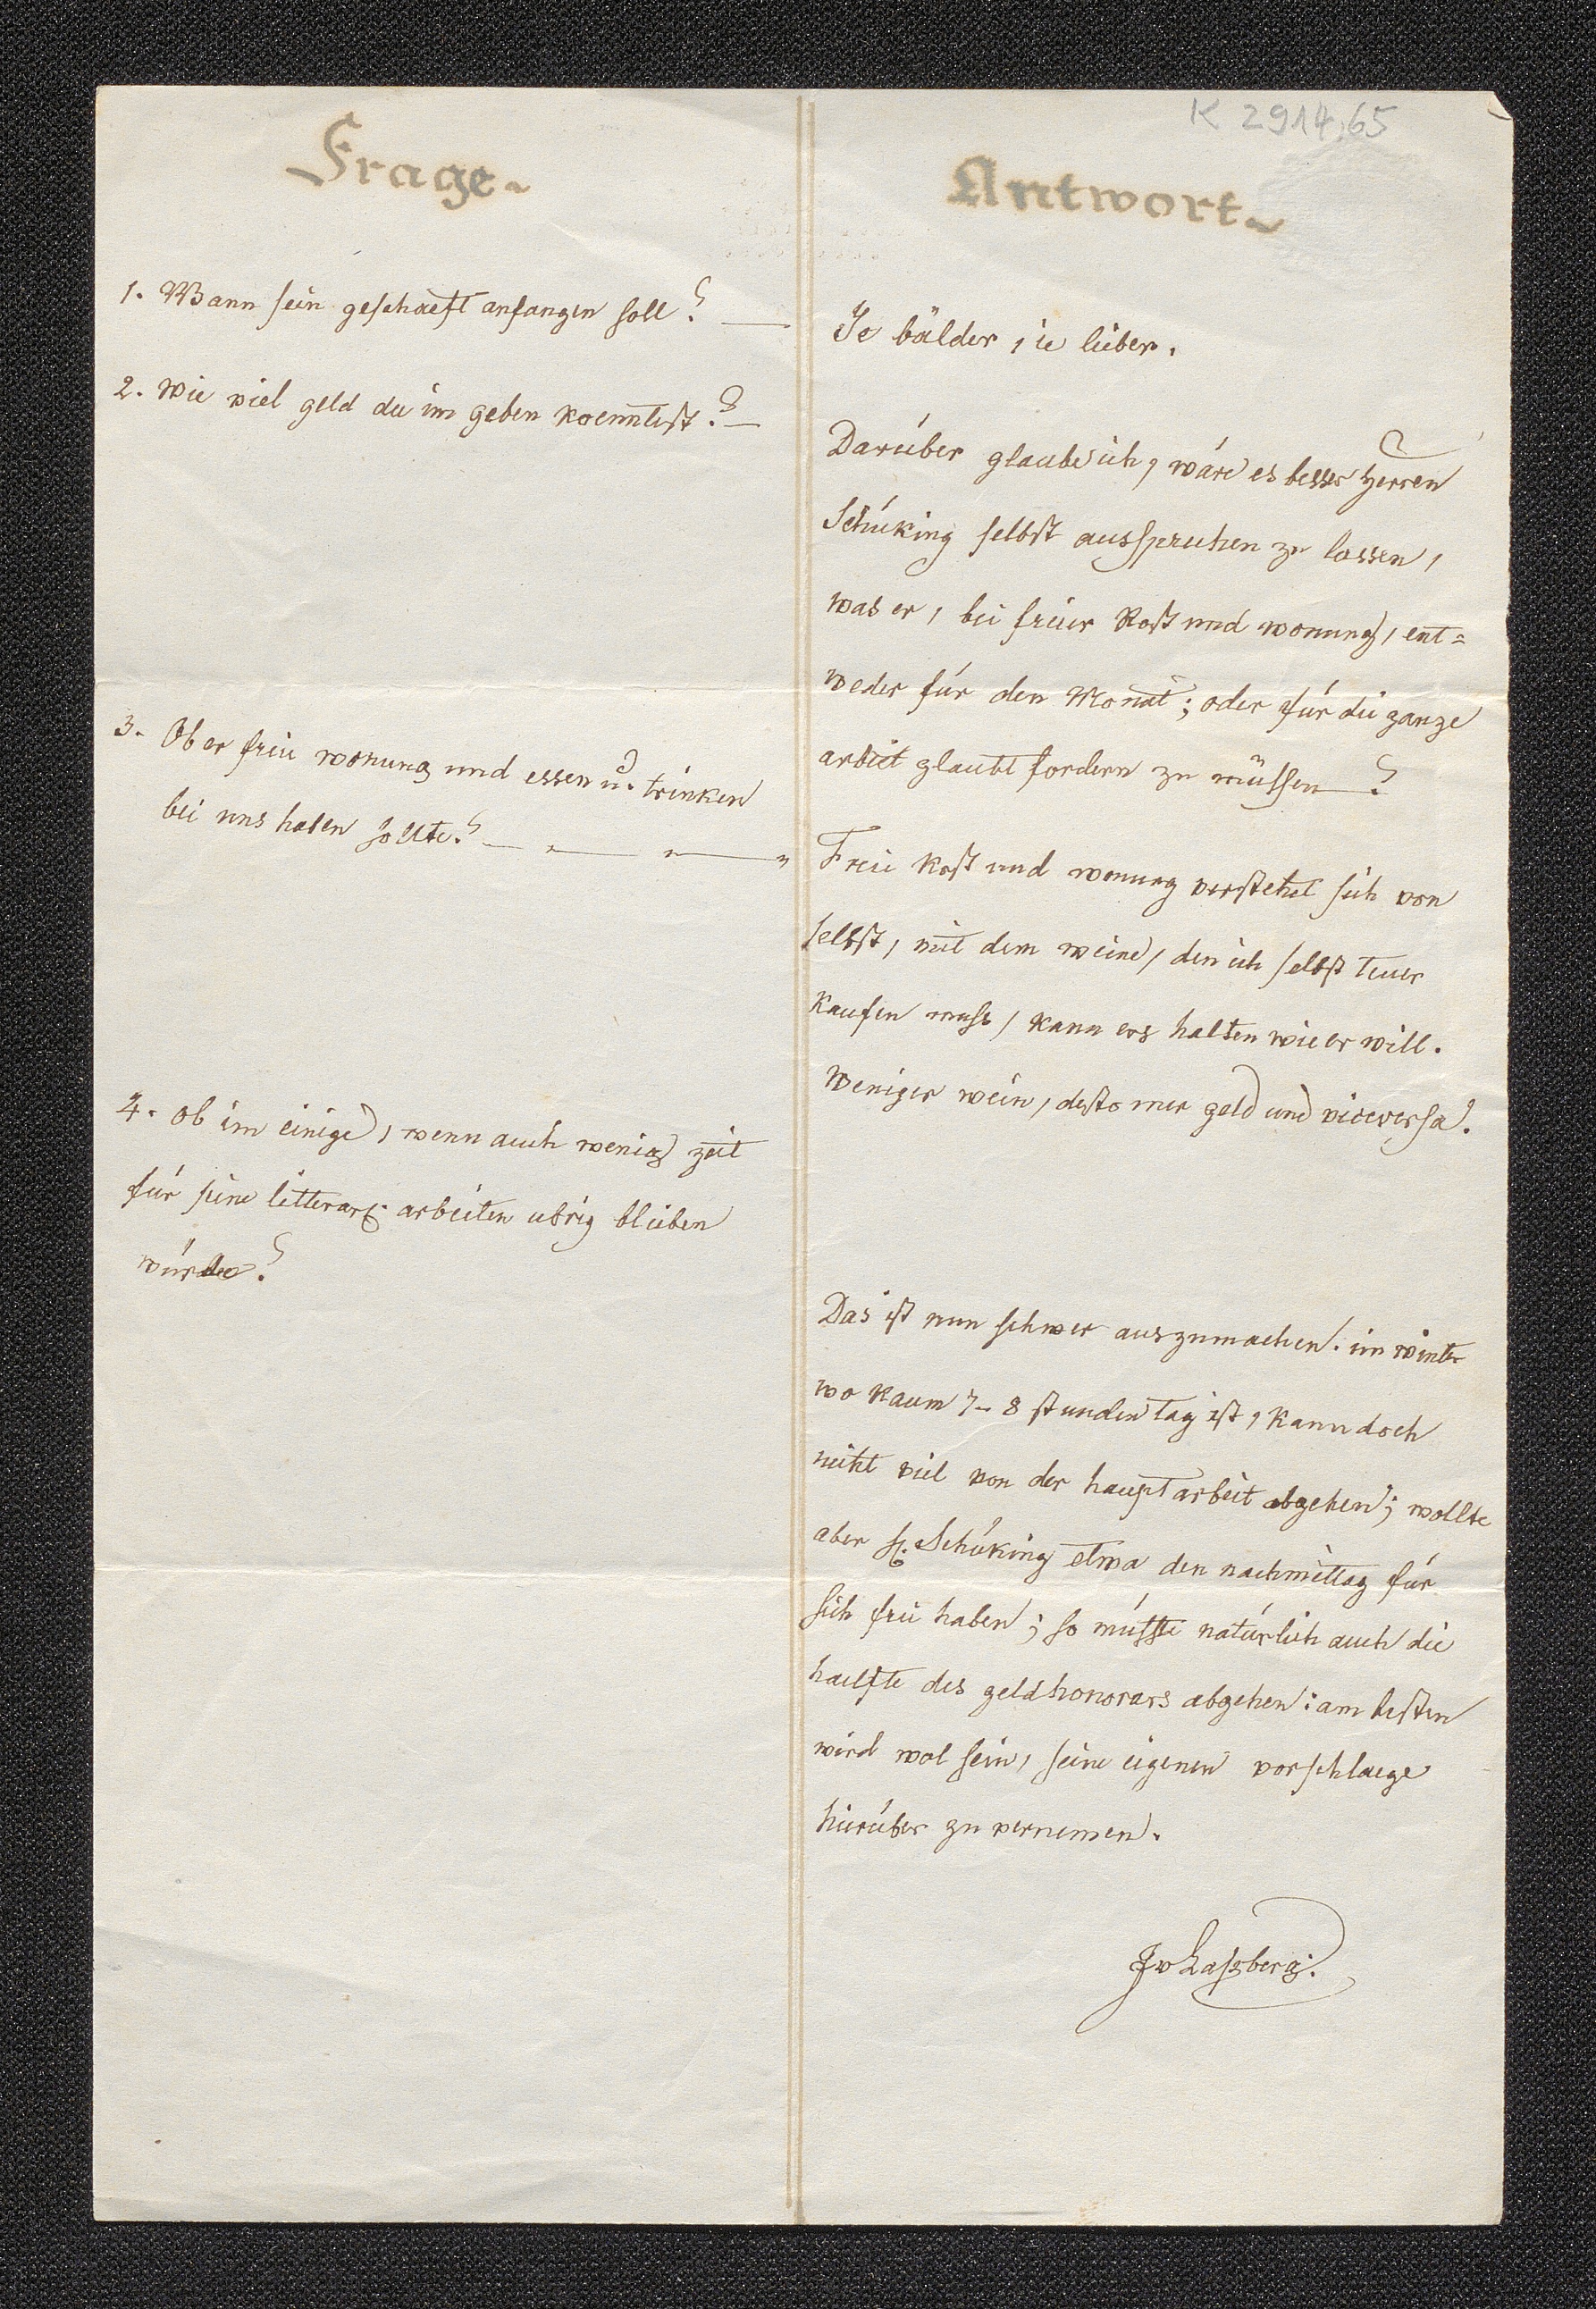 K 2914,65
Frage.
1. Wann sein geschaeft anfangen soll? —
2. Wie viel geld du im geben koenntest? —
3. Ob er freie wonung und essen u. trinken
bei uns haben sollte? — „ — „ — „
4. ob im einige, wenn auch wenig zeit
für seine litterar. arbeiten ubrig bleiben
würde?
Antwort.
Je bälder, ie lieber.
Darüber glaube ich, wäre es besser Herren
Schüking selbst aussprechen zu lassen,
was er, bei freier Kost und wonung, ent=
weder für den Monat; oder für die ganze
arbeit glaubt fordern zu müssen?
Freie Kost und wonung verstehet sich von
selbst, mit dem weine, den ich selbst teuer
kaufen muss, kann ers halten wie er will.
Weniger wein, desto mer geld und viceversa.
Das ist nun schwer auszumachen. im winter
wo kaum 7–8 stunden tag ist, kann doch
nicht viel von der hauptarbeit abgehen; wollte
aber H. Schüking etwa den nachmittag für
sich frei haben; so müsste natürlich auch die
haelfte des geldhonorars abgehen: am besten
wird wol sein, seine eigenen vorschlaege
hierüber zu vernemen.
JvLaszberg.